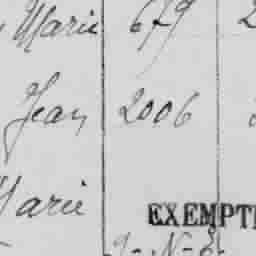 Marie 679 2
Jean 2006
Marie
EXEMPT
N-E